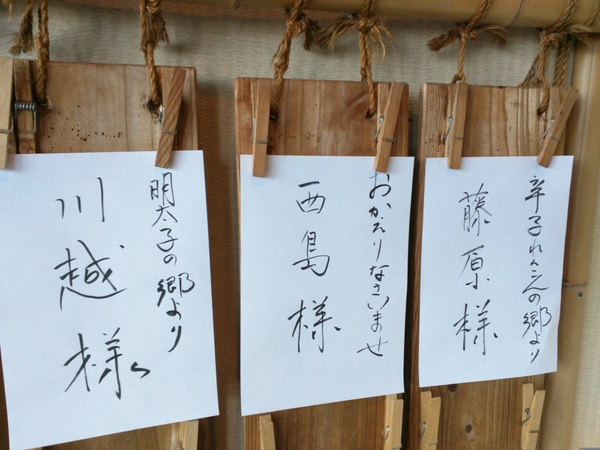 辛子れんこんの郷より
藤原様
おかえりなさいませ
西島様
明太子の郷より
川越様